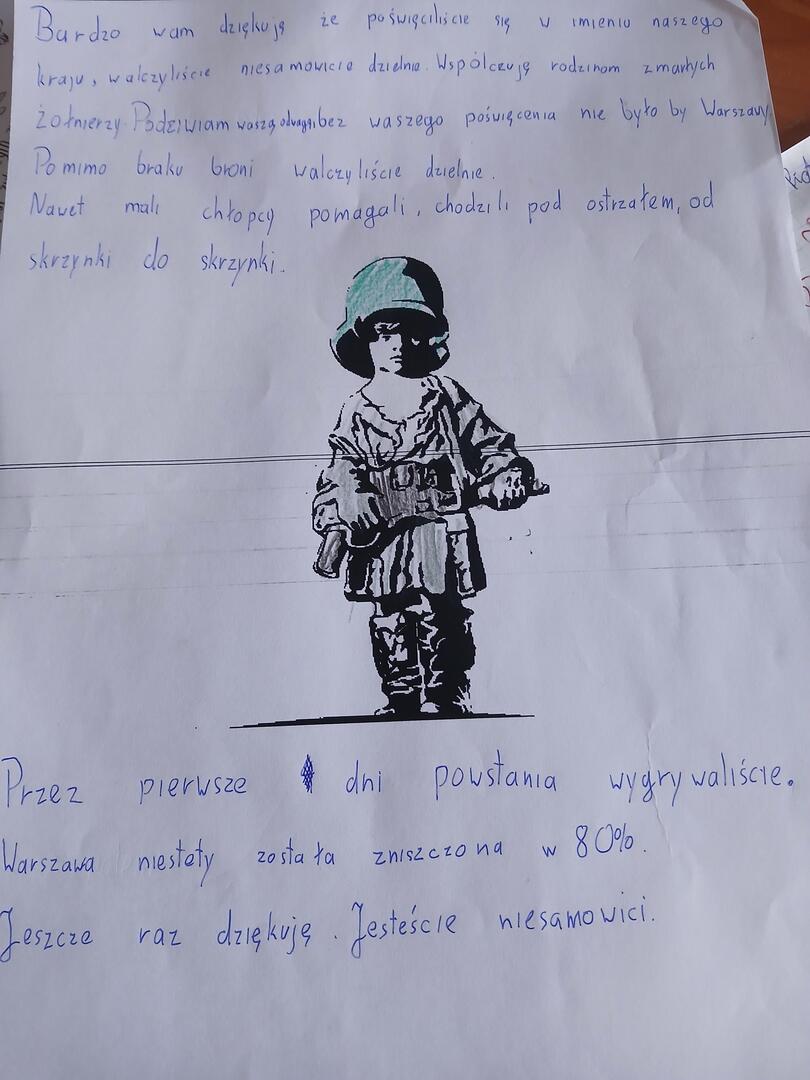 Bardzo wam dziękuję że poświęciliście się w imieniu naszego
kraju, walczyliście niesamowicie dzielnie. Współczuję rodzinom zmarłych
żołnierzy. Podziwiam waszą odwagę, bez waszego poświęcenia nie było by Warszawy.
Pomimo braku broni walczyliście dzielnie.
Nawet mali chłopcy pomagali, chodzili pod ostrzałem, od
skrzynki do skrzynki.
Przez pierwsze dni powstania wygrywaliście.
Warszawa niestety została zniszczona w 80%.
Jeszcze raz dziękuję. Jesteście niesamowici.